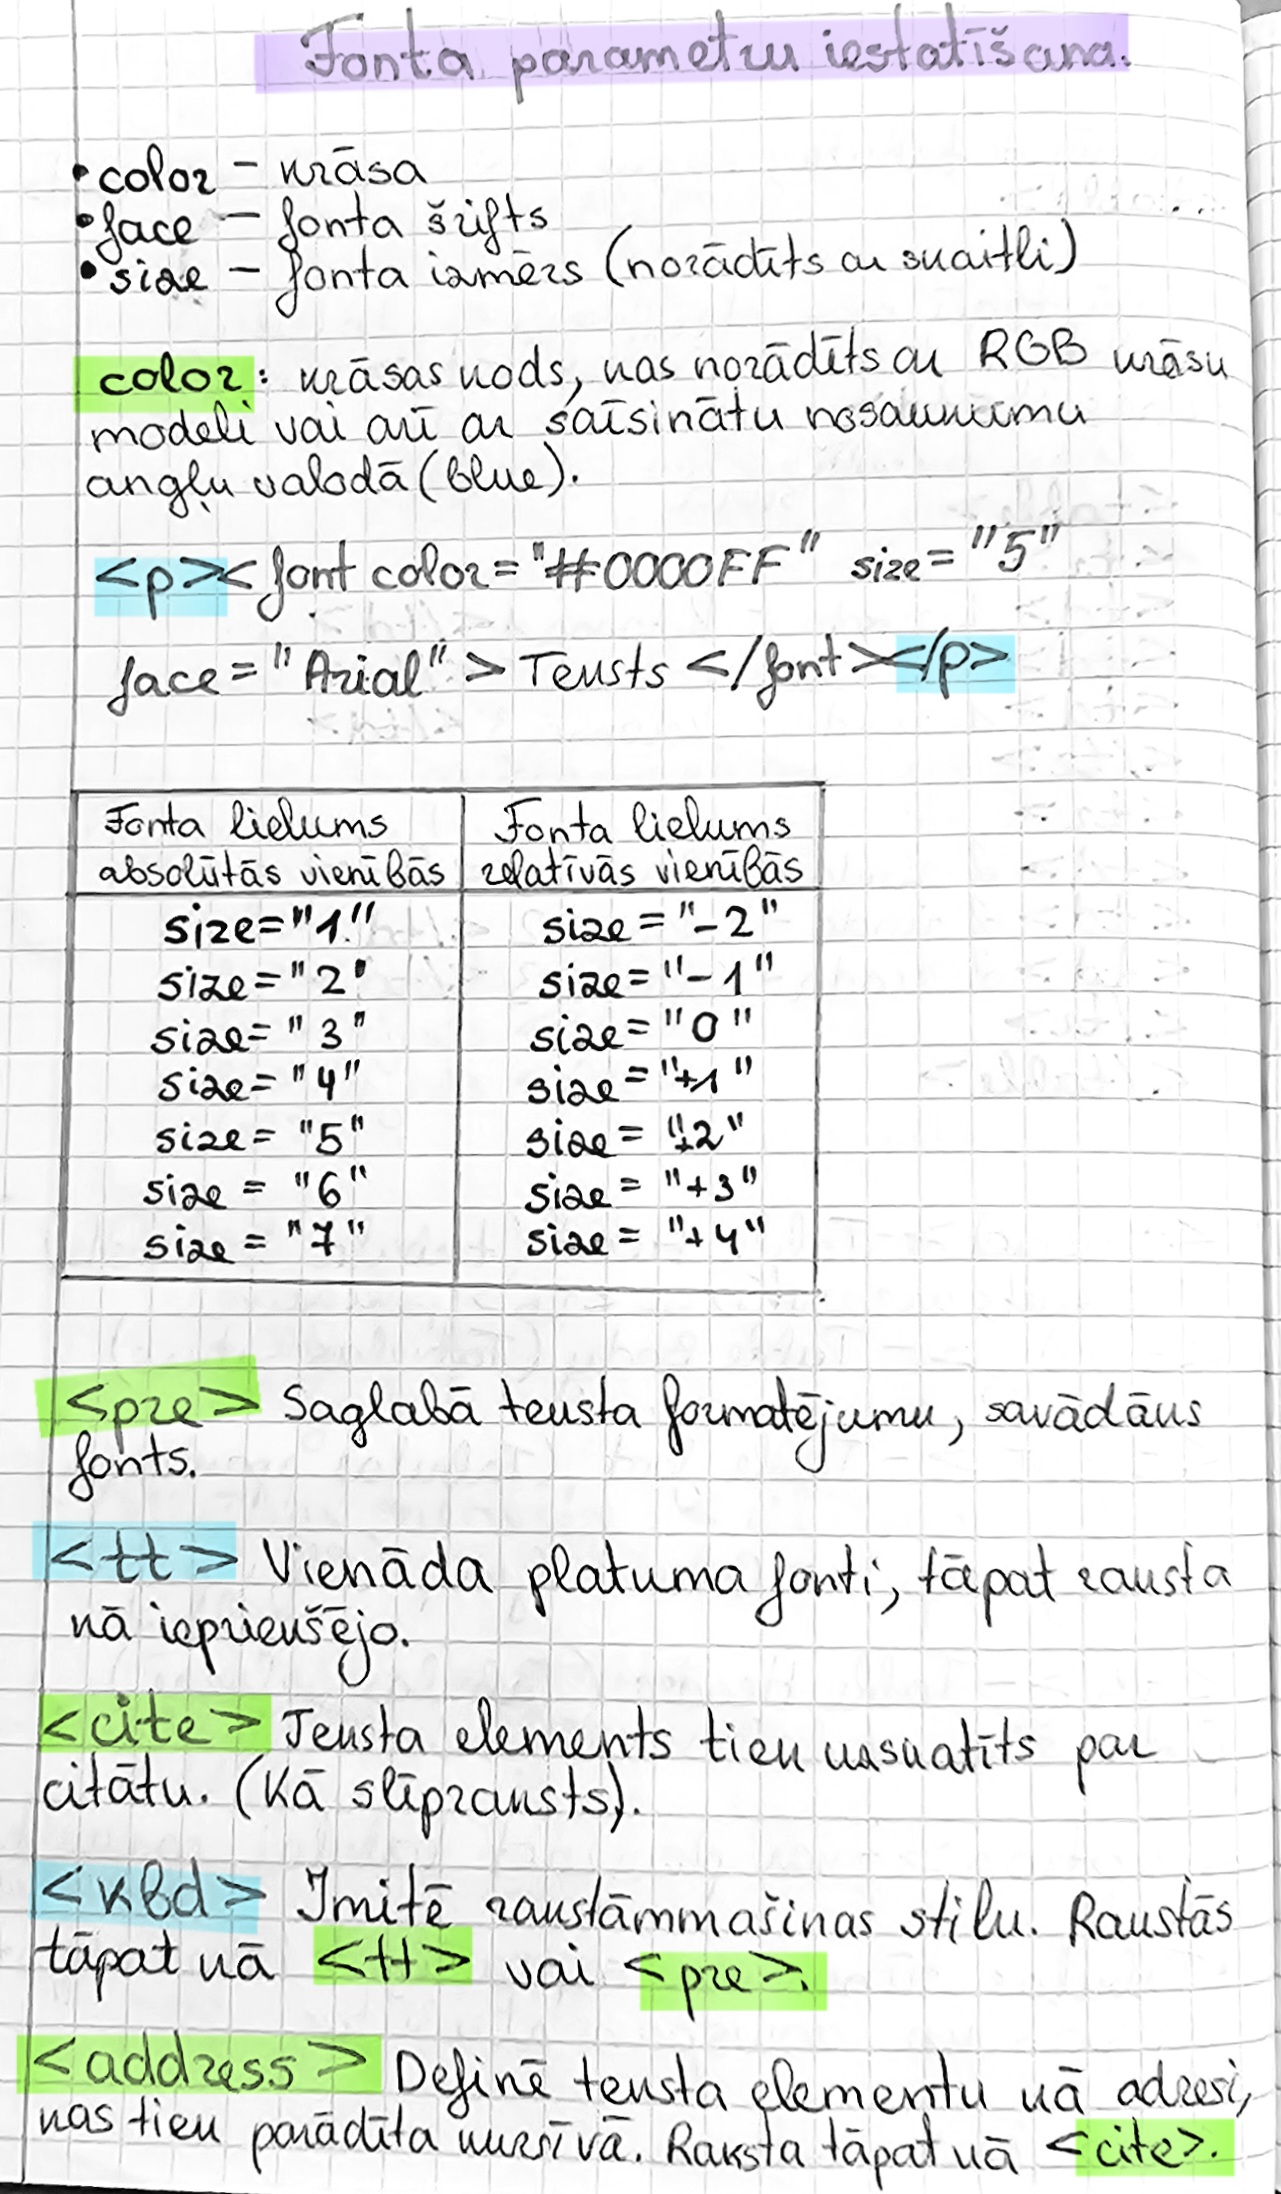 Fonta parametru iestatīšana.
• color – krāsa
• face – fonta šrifts
• size – fonta izmērs (norādīts ar skaitli)
color: krāsas kods, kas norādīts ar RGB krāsu
modeli vai arī ar saīsinātu nosaukumu
angļu valodā (blue).
<p><font color="#0000FF" size="5"
face="Arial">Teksts</font></p>
Fonta lielums absolūtās vienībās | Fonta lielums relatīvās vienībās
size="1" | size="-2"
size="2" | size="-1"
size="3" | size="0"
size="4" | size="+1"
size="5" | size="+2"
size="6" | size="+3"
size="7" | size="+4"
<pre> Saglabā teksta formatējumu, savādāks
fonts.
<tt> Vienāda platuma fonti, tāpat raksta
kā iepriekšējo.
<cite> Teksta elements tiek uzskatīts par
citātu. (Kā slīpraksts).
<kbd> Imitē rakstāmmašīnas stilu. Rakstās
tāpat kā <tt> vai <pre>.
<address> Definē teksta elementu kā adresi,
kas tiek parādīta kursīvā. Raksta tāpat kā <cite>.